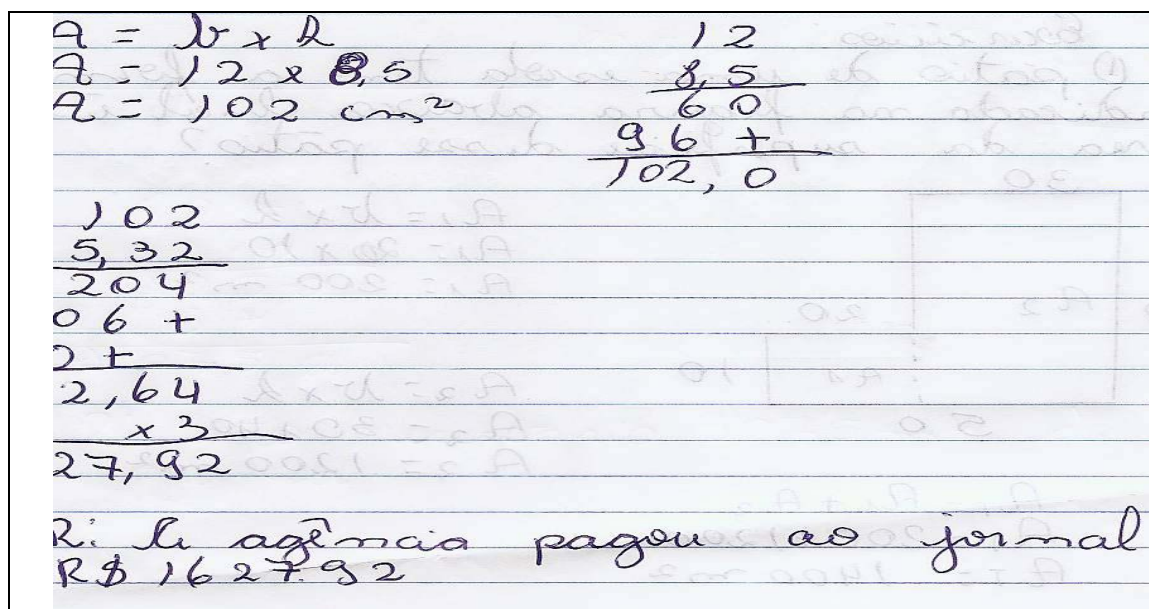 A = b x h
A = 12 x 8,5
A = 102 cm²
12
8,5
60
96 +
102,0
102
5,32
204
06 +
2 +
2,64
x 3
27,92
R: A agência pagou ao jornal
R$ 1627.92